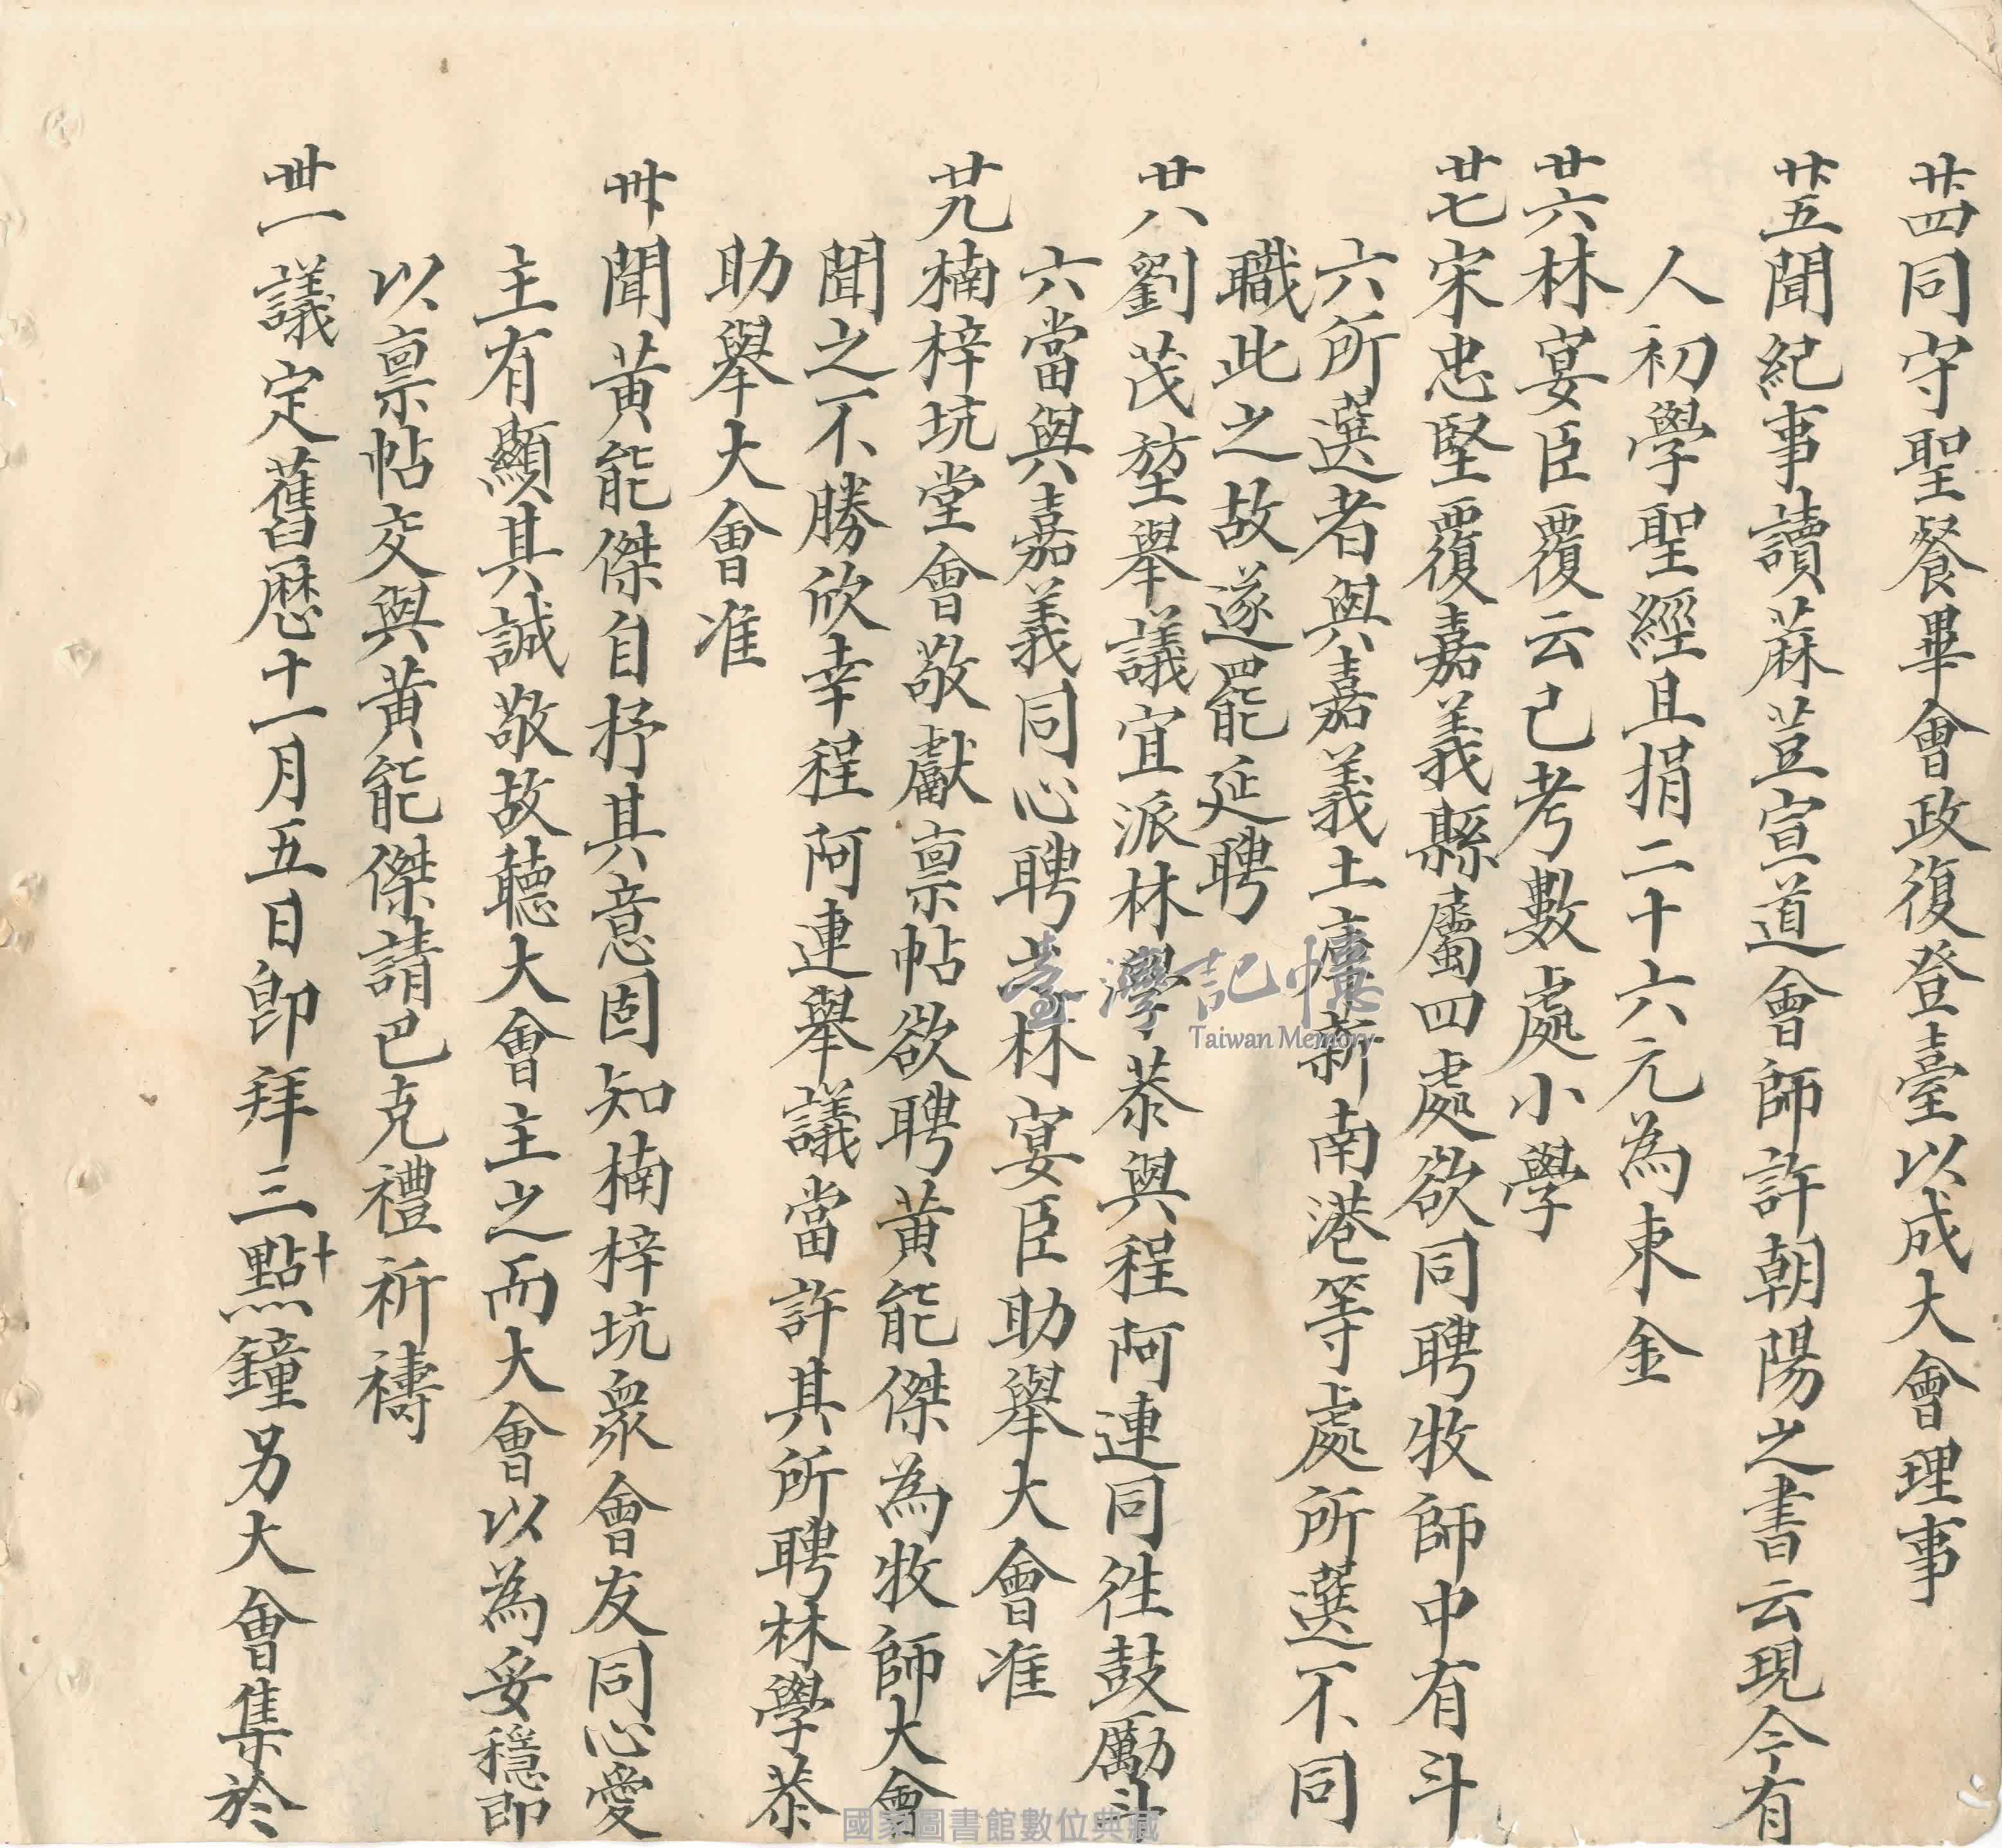 廿四同守聖餐畢會政復登臺以成大會理事
廿五聞紀事讀蔴荳宣道會師許朝陽之書云現今有
人初學聖經且捐二十六元為束金
廿六林宴臣覆云已考數處小學
廿七宋忠堅覆嘉義縣屬四處欲同聘牧師中有斗
六所選者與嘉義土庫新南港等處所選不同
職此之故遂罷延聘
廿八劉茂堃舉議宜派林學恭與程阿連同往鼓勵斗
六當與嘉義同心聘若林宴臣助舉大會准
廿九楠梓坑堂會敬獻禀帖欲聘黃能傑為牧師大會
聞之不勝欣幸程阿連舉議當許其所聘林學恭
助舉大會准
卅聞黃能傑自抒其意固知楠梓坑眾會友同心愛
主有顯其誠敬故聽大會主之而大會以為妥穩即
以禀帖交與黃能傑請巴克禮祈禱
卅一議定舊曆十一月五日即拜三十點鐘另大會集於
臺灣記憶
Taiwan Memory
國家圖書館數位典藏